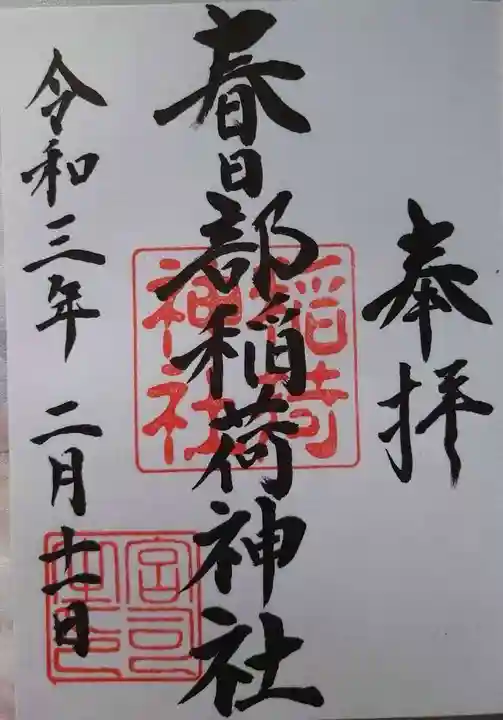 奉拝
春日部稲荷神社
稲荷
神社
令和三年二月十一日
宮司
之印